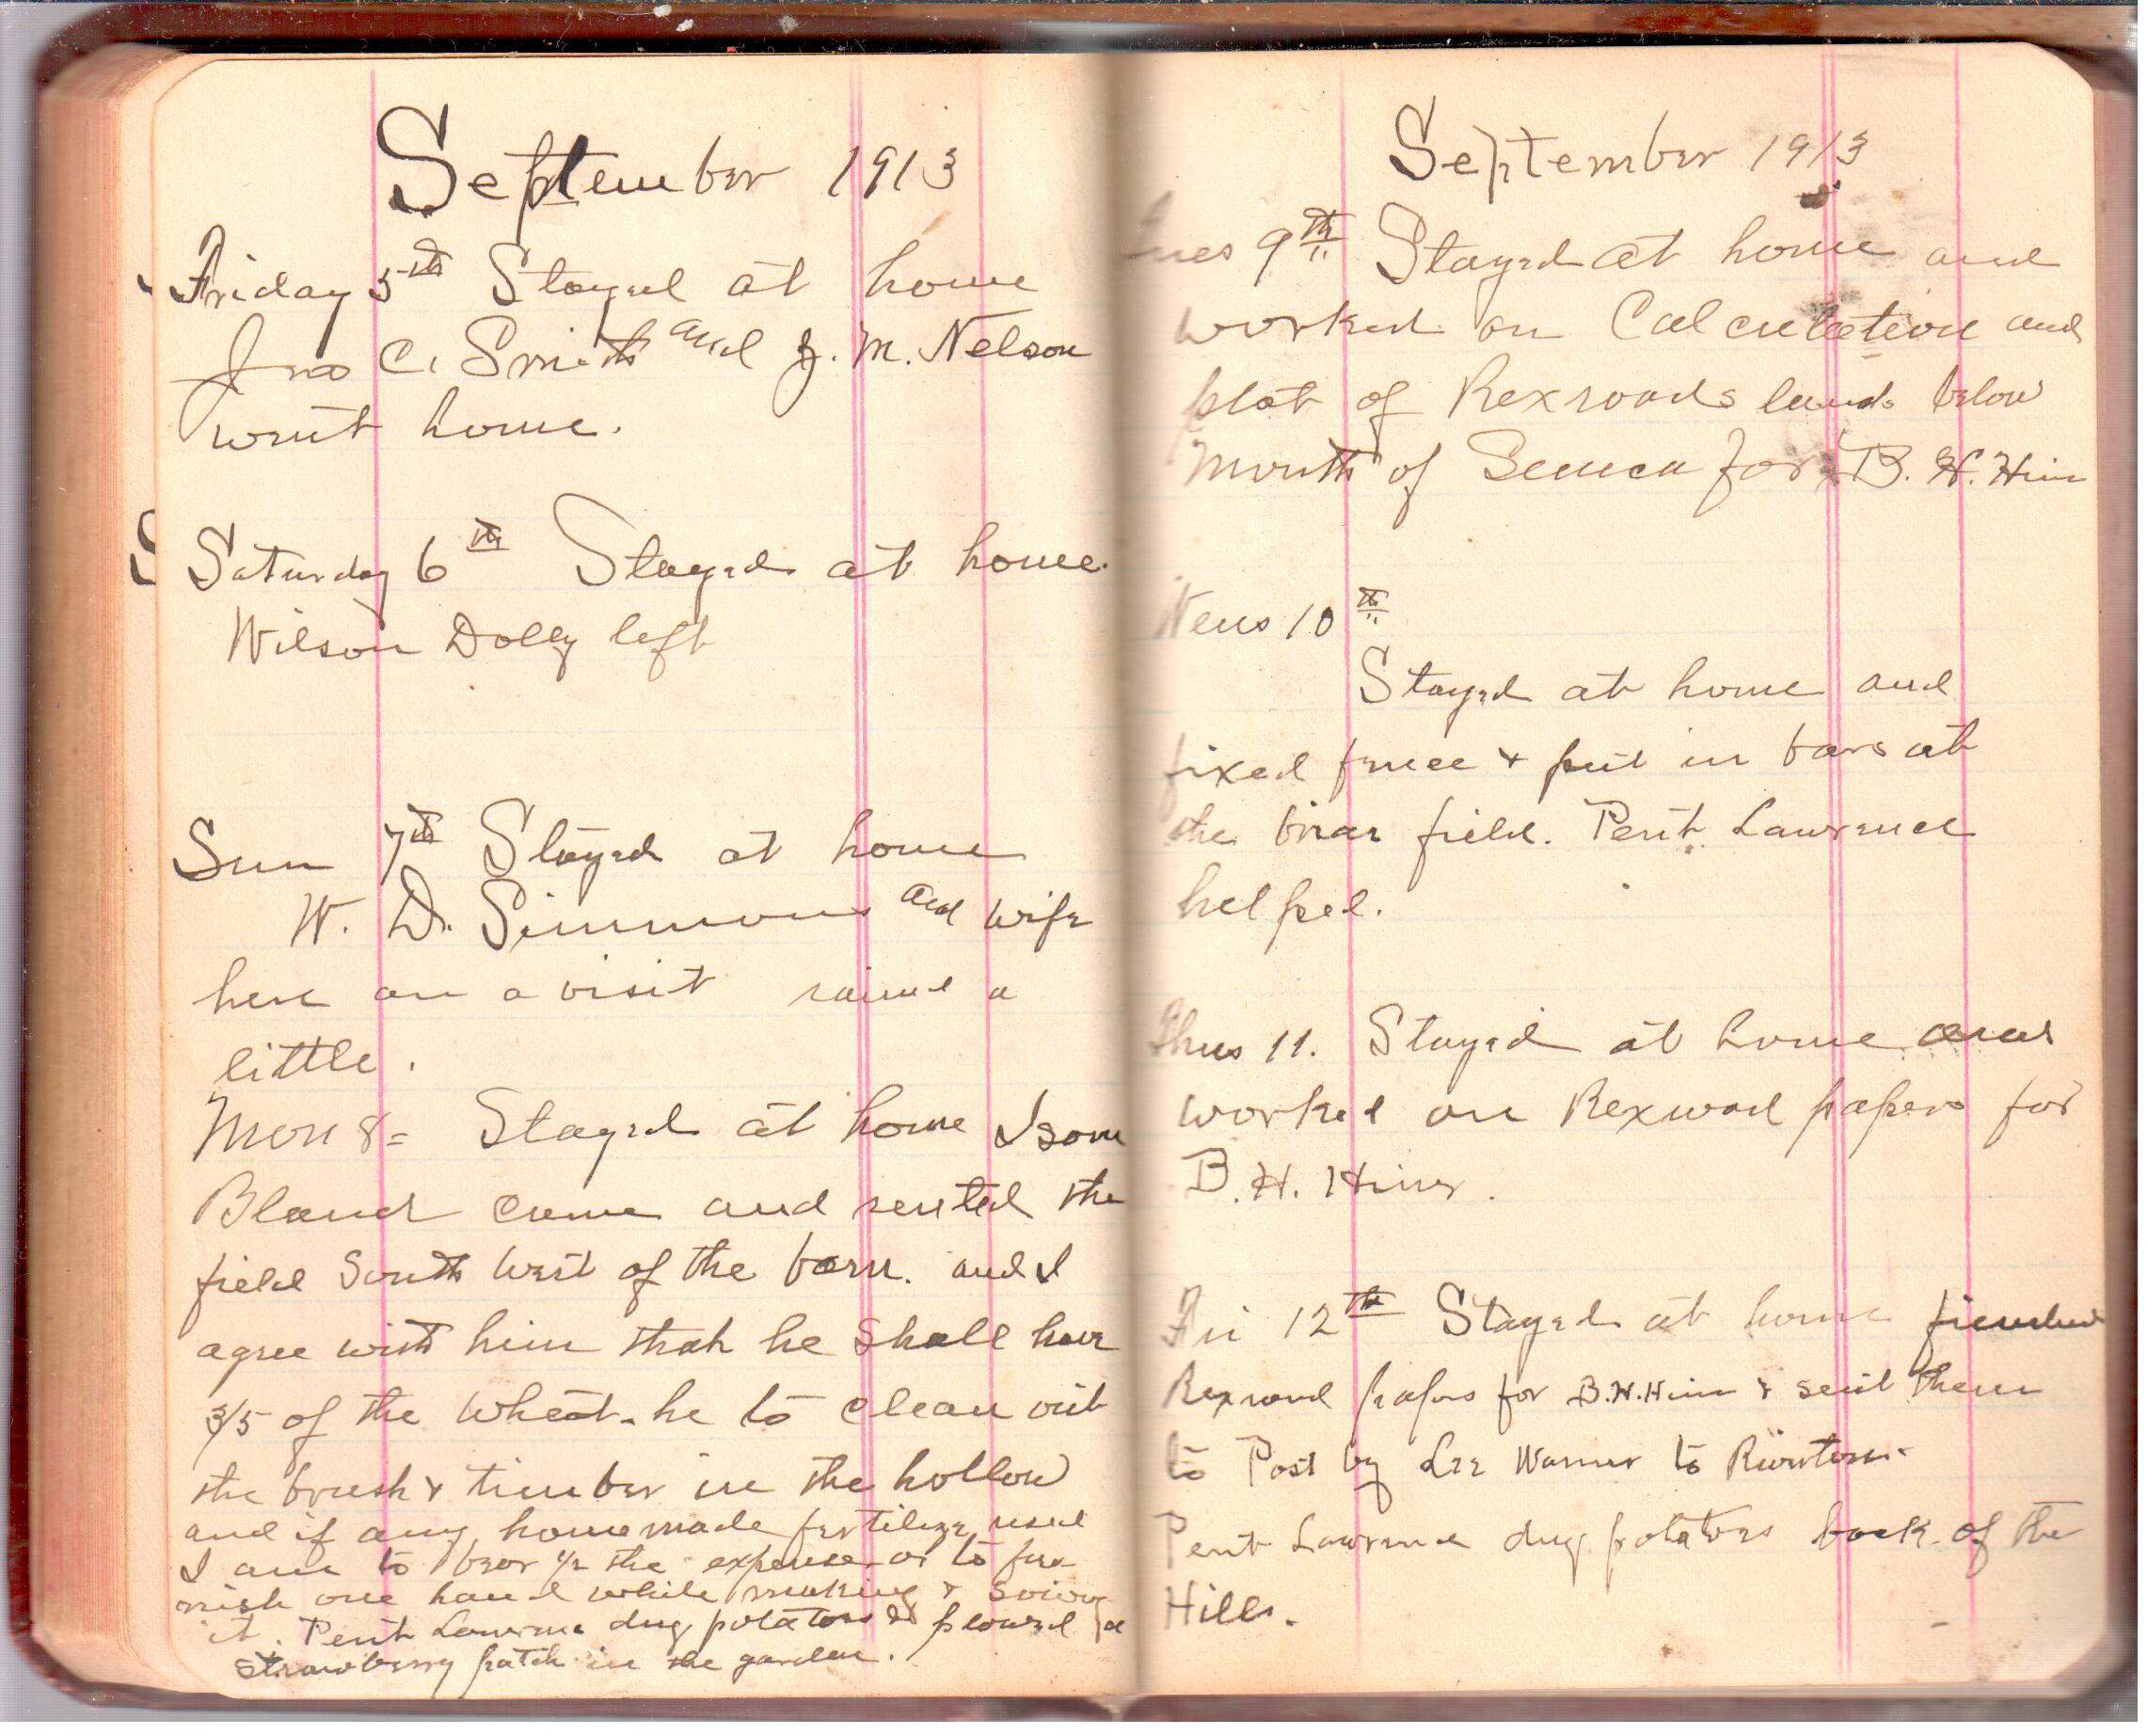 September 1913
Friday 5th Stayed at home
Jno C. Smith and J. M. Nelson
went home.
Saturday 6th Stayed at home.
Wilson Dolly left
Sun 7th Stayed at home
W. D. Simmons and wife
here on a visit rained a
little.
Mon 8= Stayed at home Isom
Bland came and rented the
field South West of the barn. and I
agree with him that he shall have
3/5 of the wheat. he to clean out
the brush & timber in the hollow
and if any homemade fertilizer used
I am to bear 1/2 the expense or to fur-
nish one hand while making & sowing
it. Pent Lawrence dug potatoes & plowed
strawberry patch in the garden.
September 1913
Tues 9th Stayed at home and
worked on Calculation and
plot of Rexroads lands below
Mouth of Seneca for B. H. Hiner
Wens 10th
Stayed at home and
fixed fence & put in bars at
the briar field. Pent Lawrence
helped.
Thus 11. Stayed at home and
worked on Rexroad papers for
B. H. Hiner.
Fri 12th Stayed at home finished
Rexroad papers for B. H. Hiner & sent them
to Post by Lee Warner to Riverton.
Pent Lawrence dug potatoes back of the
Hills.